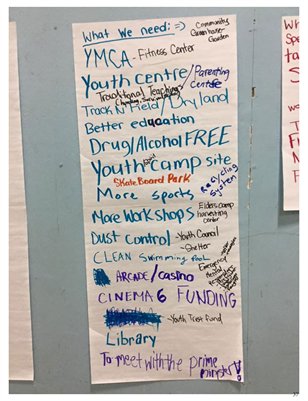 What we need: =>
Community
Greenhouse-
Garden
YMCA - Fitness Center
Youth centre/Parenting
Centre
Traditional Teachings
Track N Field/Dry land
Better education
Drug/Alcohol FREE
Youth camp site
Skate Board Park
More sports
Recycling
System
More Workshops
Elders camp
harvesting
center
Dust control
- Youth Council
- Shelter
CLEAN Swimming Pool
Emergency
ARCADE/casino
CINEMA 6 FUNDING
- Youth Trust fund
Library
To meet with the prime
minister!